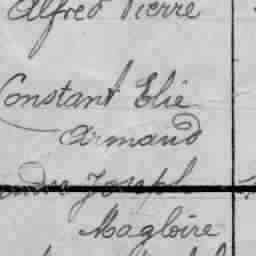 Alfred Pierre
Constant Elie
Armand
Joseph
Magloire